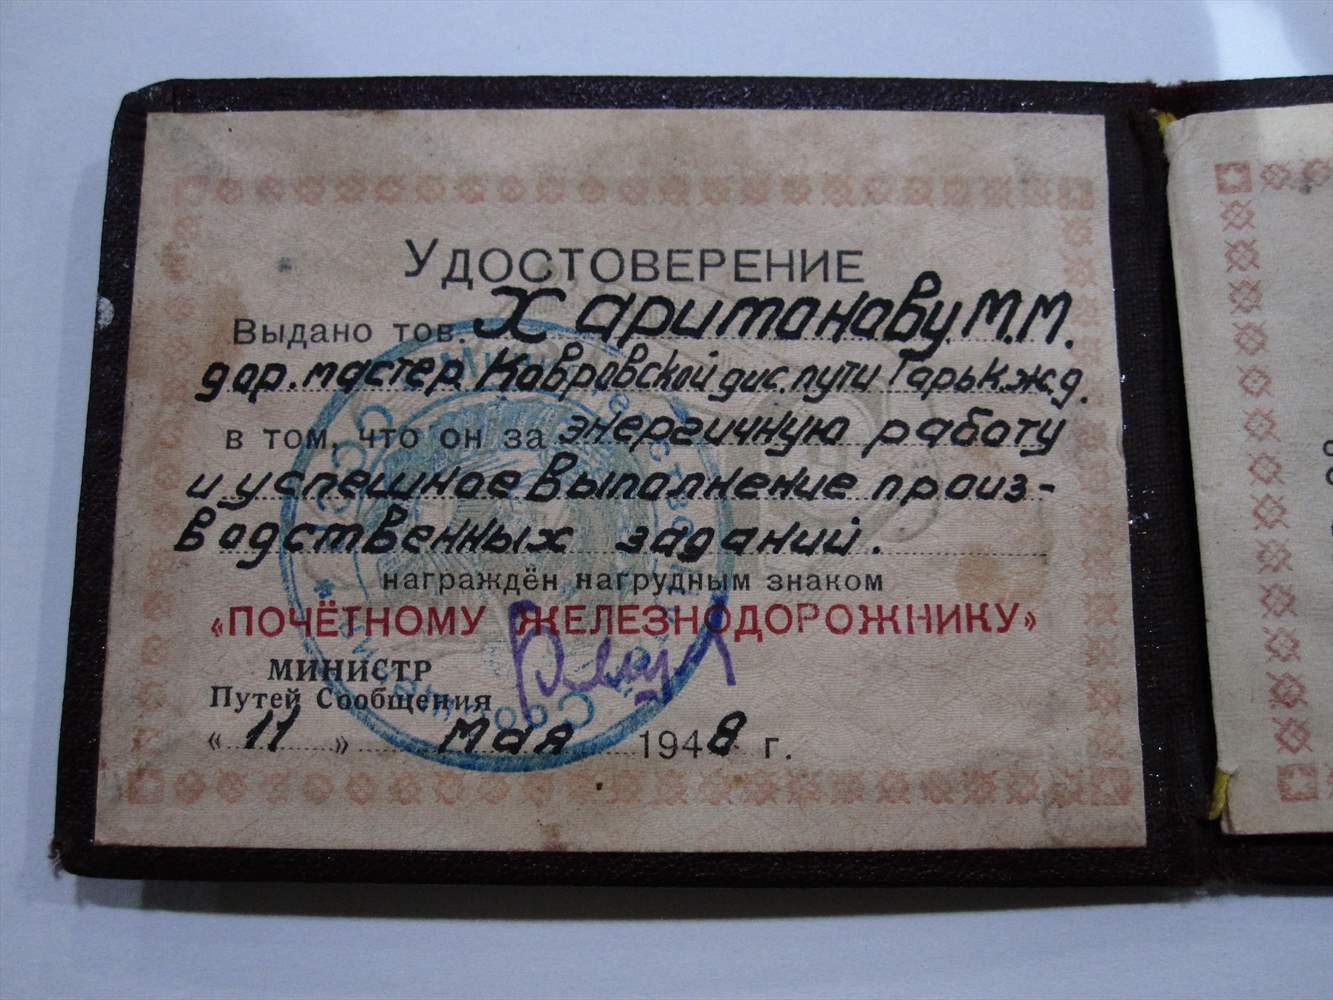 Удостоверение
Выдано тов. Харитонову М.М.
дор. мастер Ковровской дис. пути Горьк. ж.д.
в том, что он за энергичную работу
и успешное выполнение произ-
водственных заданий.
награждён нагрудным знаком
«ПОЧЁТНОМУ ЖЕЛЕЗНОДОРОЖНИКУ»
МИНИСТР
Путей Сообщения
« 11 » мая 1948 г.